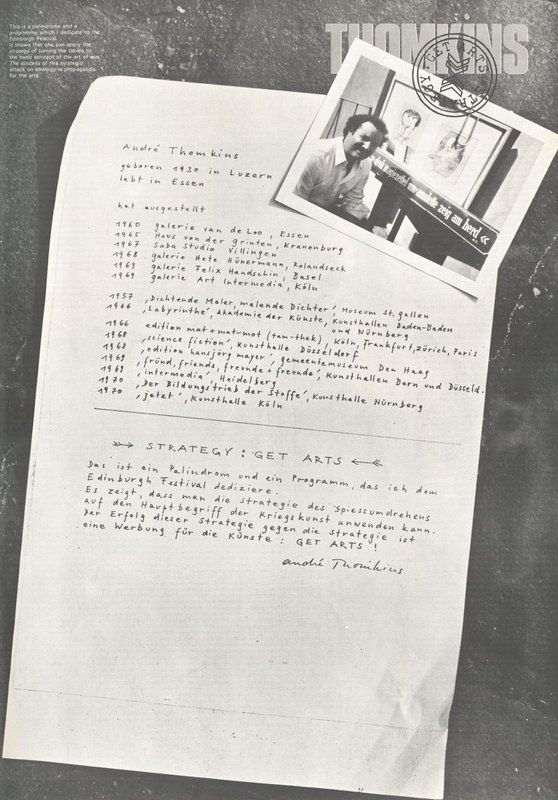 This is a palindrome and a
programme which I dedicate to the
Edinburgh Festival.
It shows that one can apply the
strategy of turning the tables to
the basic concept of the art of war.
The success of this strategic
attack on strategy is propaganda
for the arts
THOMKINS
STRATEGY GET ARTS
zeig am herd «
André Thomkins
geboren 1930 in Luzern
lebt in Essen
hat ausgestellt
1960 galerie van de Loo, Essen
1965 Haus van der grinten, Kranenburg
1967 Saba Studio Villingen
1968 galerie Hete Hünermann, Rolandseck
1969 galerie Felix Handschin, Basel
1969 galerie Art Intermedia, Köln
1957 ‚Dichtende Maler, malende Dichter', Museum St. gallen
1966 ‚Labyrinthe', Akademie der Künste, Kunsthallen Baden-Baden
und Nürnberg
1966 edition mat+mat-mot (tam-thek), Köln, Frankfurt, Zürich, Paris
1968 ‚science fiction', Kunsthalle Düsseldorf
1968 ‚edition hansjörg mayer', gemeentemuseum Den Haag
1969 ‚fründ, friends, freunde + freunde', Kunsthallen Bern und Düsseld.
1969 ‚intermedia', Heidelberg
1970 ‚Der Bildungstrieb der Stoffe', Kunsthalle Nürnberg
1970 ‚jetzt', Kunsthalle Köln
STRATEGY : GET ARTS
Das ist ein Palindrom und ein Programm, das ich dem
Edinburgh Festival dediziere.
Es zeigt, dass man die Strategie des Spiessumdrehens
auf den Hauptbegriff der Kriegskunst anwenden kann.
Der Erfolg dieser Strategie gegen die Strategie ist
eine Werbung für die Künste : GET ARTS !
andré Thomkins